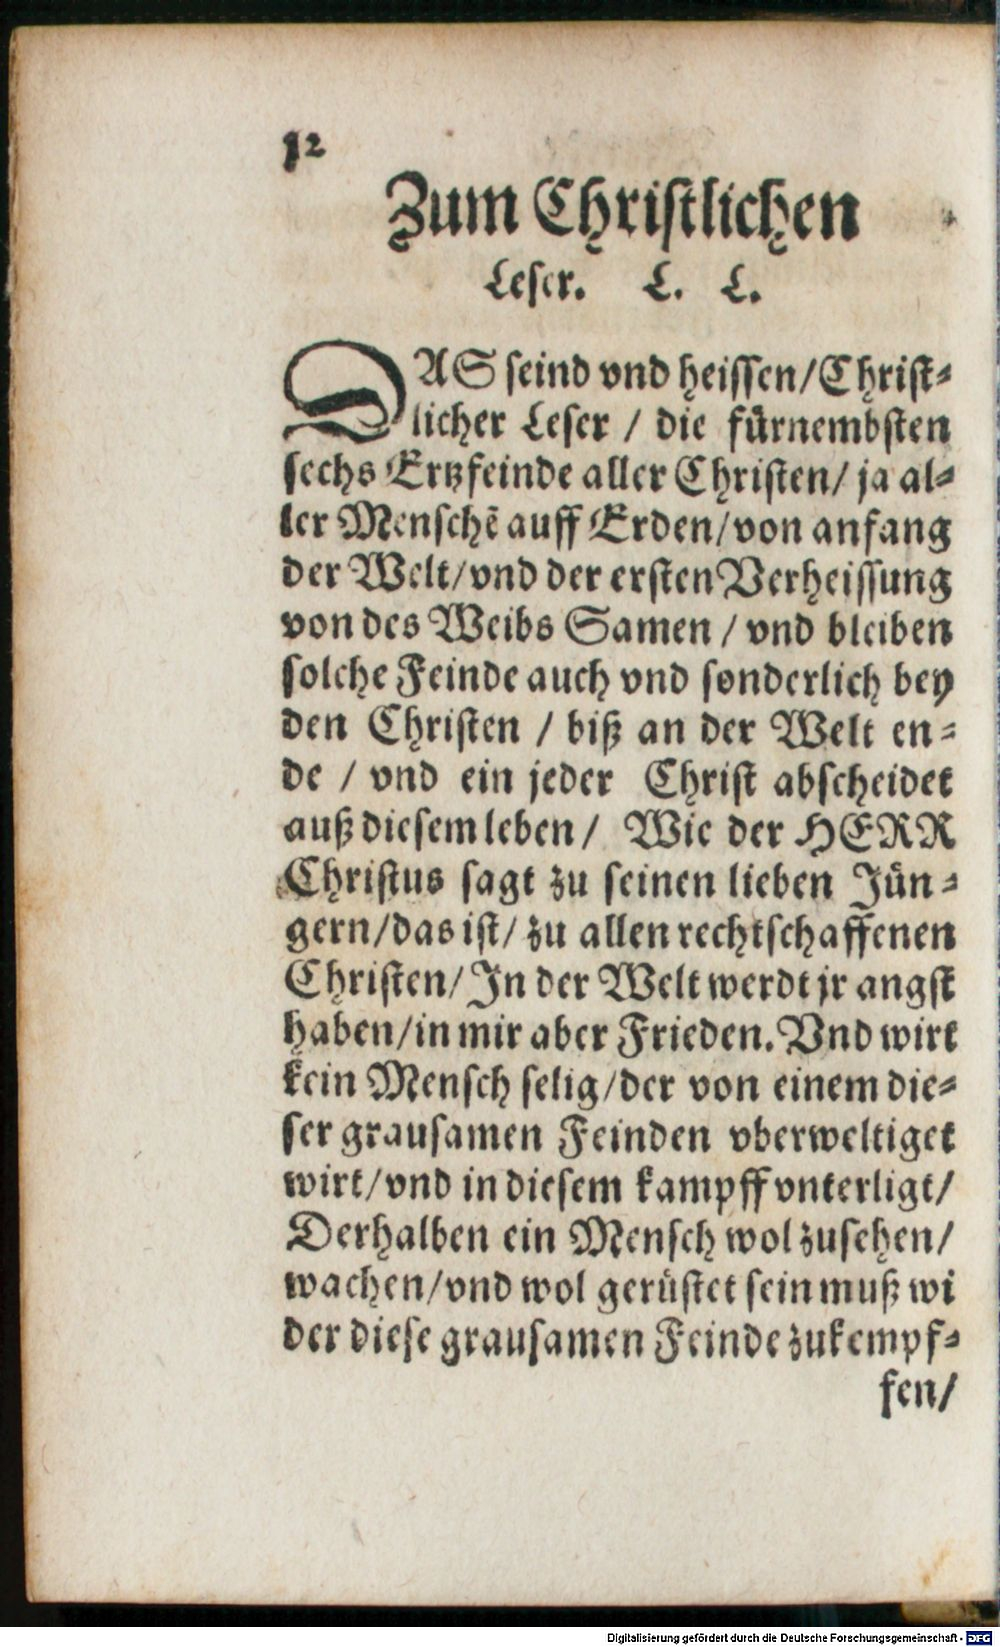 12
Zum Christlichen
Leser. L. L.
DAS seind vnd heissen/Christ-
licher Leser / die fürnembsten
sechs Ertzfeinde aller Christen/ ja al-
ler Menschē auff Erden/von anfang
der Welt/vnd der ersten Verheissung
von des Weibs Samen / vnd bleiben
solche Feinde auch vnd sonderlich bey
den Christen / biß an der Welt en-
de / vnd ein jeder Christ abscheidet
auß diesem leben/ Wie der HERR
Christus sagt zu seinen lieben Jün-
gern/das ist/ zu allen rechtschaffenen
Christen/ In der Welt werdt jr angst
haben/in mir aber Frieden. Vnd wirt
kein Mensch selig/der von einem die-
ser grausamen Feinden vberweltiget
wirt/vnd in diesem kampff vnterligt/
Derhalben ein Mensch wol zusehen/
wachen/vnd wol gerüstet sein muß wi
der diese grausamen Feinde zukempf-
fen/
Digitalisierung gefördert durch die Deutsche Forschungsgemeinschaft - DFG